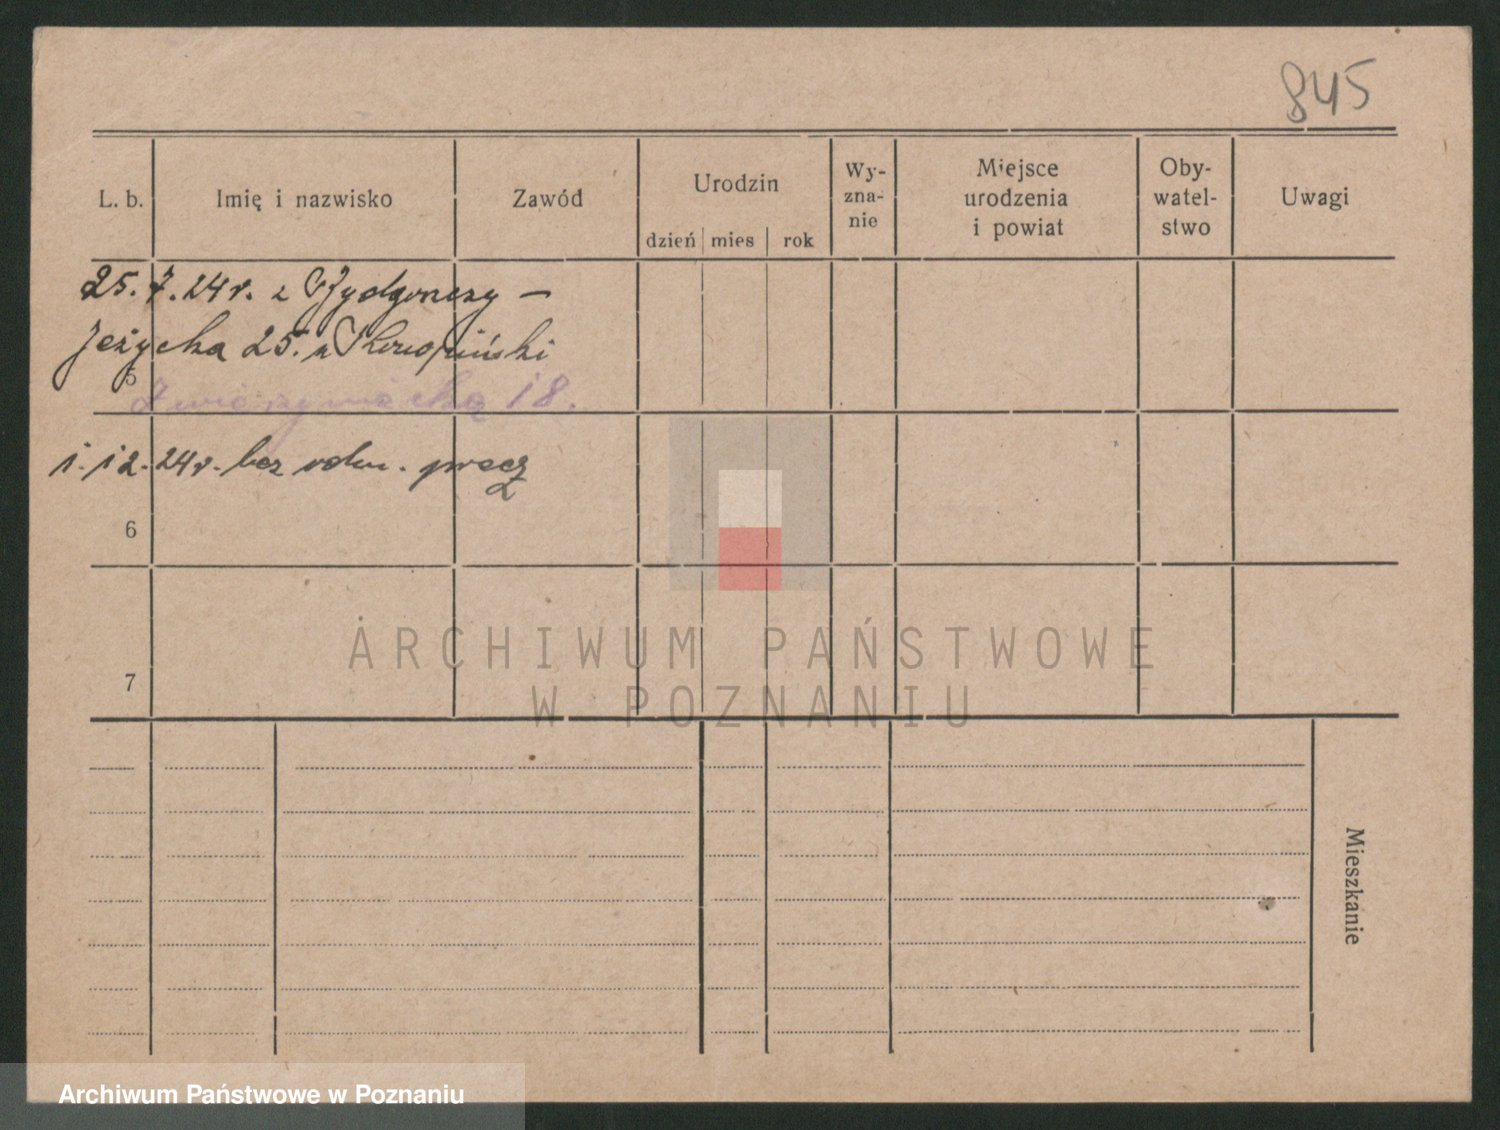 845
L. b.
Imię i nazwisko
Zawód
Urodzin
dzień mies rok
Wy-
zna-
nie
Miejsce
urodzenia
i powiat
Oby-
watel-
stwo
Uwagi
25. 7. 24 r. z Bydgoszczy —
Jeżycka 25. u
5
18.
1. 12. 24 r. bez
6
7
ARCHIWUM PAŃSTWOWE
W POZNANIU
Mieszkanie
Archiwum Państwowe w Poznaniu